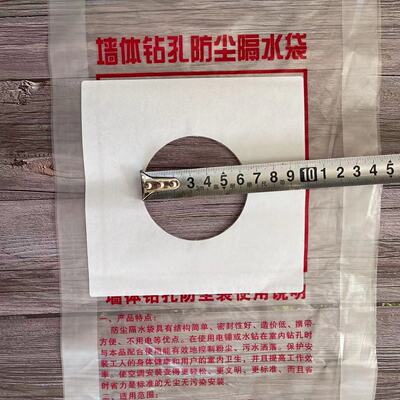 墙体钻孔防尘隔水袋
3 4 5 6 7 8 9 10 1 2 3 4 5
墙体钻孔防尘袋使用说明
一、产品特点:
防尘隔水袋具有结构简单、密封性好、造价低、携带
方便、不用电等优点。在使用电锤或水钻在室内钻孔时
与本品配合使用能有效地控制粉尘、污水洒落。保护安
装工人的身体健康和用户的室内卫生，并且提高工作效
率。使空调安装变得更轻松、更文明、更标准、而且省
时省力是标准的无尘无污染安装。
二、适用范围: